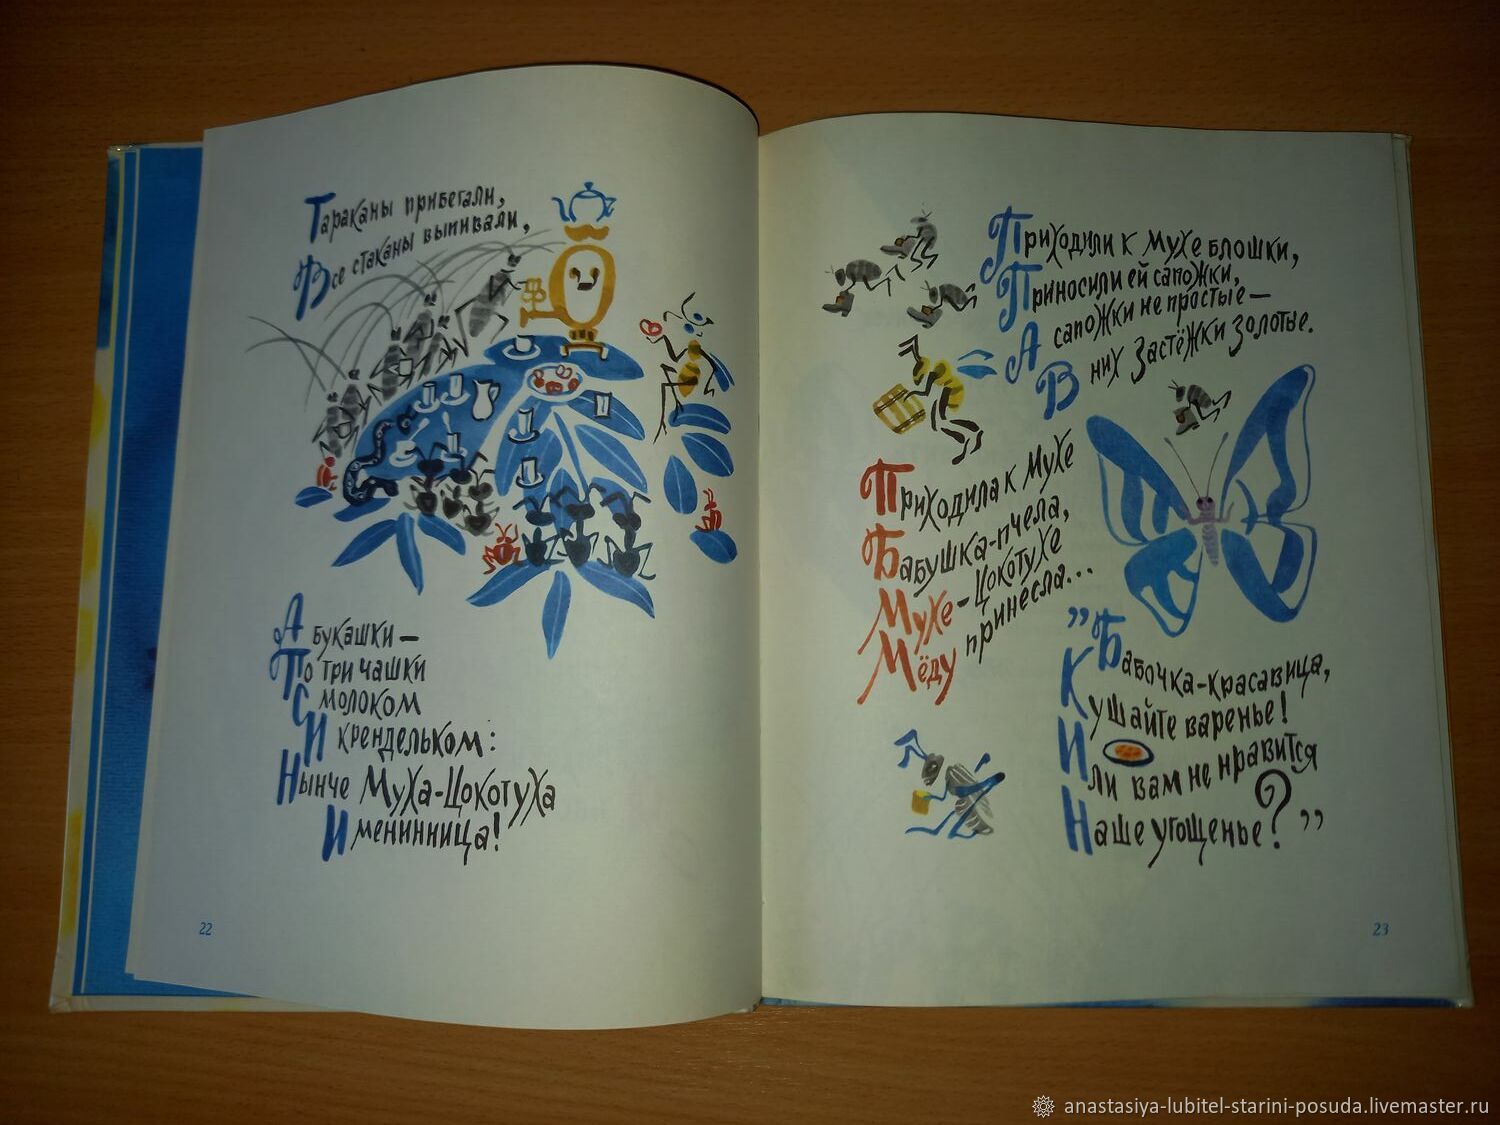 Тараканы прибегали,
Все стаканы выпивали,
А букашки —
По три чашки
С молоком
И крендельком:
Нынче Муха-Цокотуха
Именинница!
22
Приходили к Мухе блошки,
Приносили ей сапожки,
А сапожки не простые —
В них застёжки золотые.
Приходила к Мухе
Бабушка-пчела,
Мухе-Цокотухе
Мёду принесла...
„Бабочка-красавица,
Кушайте варенье!
Или вам не нравится
Наше угощенье?”
23
anastasiya-lubitel-starini-posuda.livemaster.ru